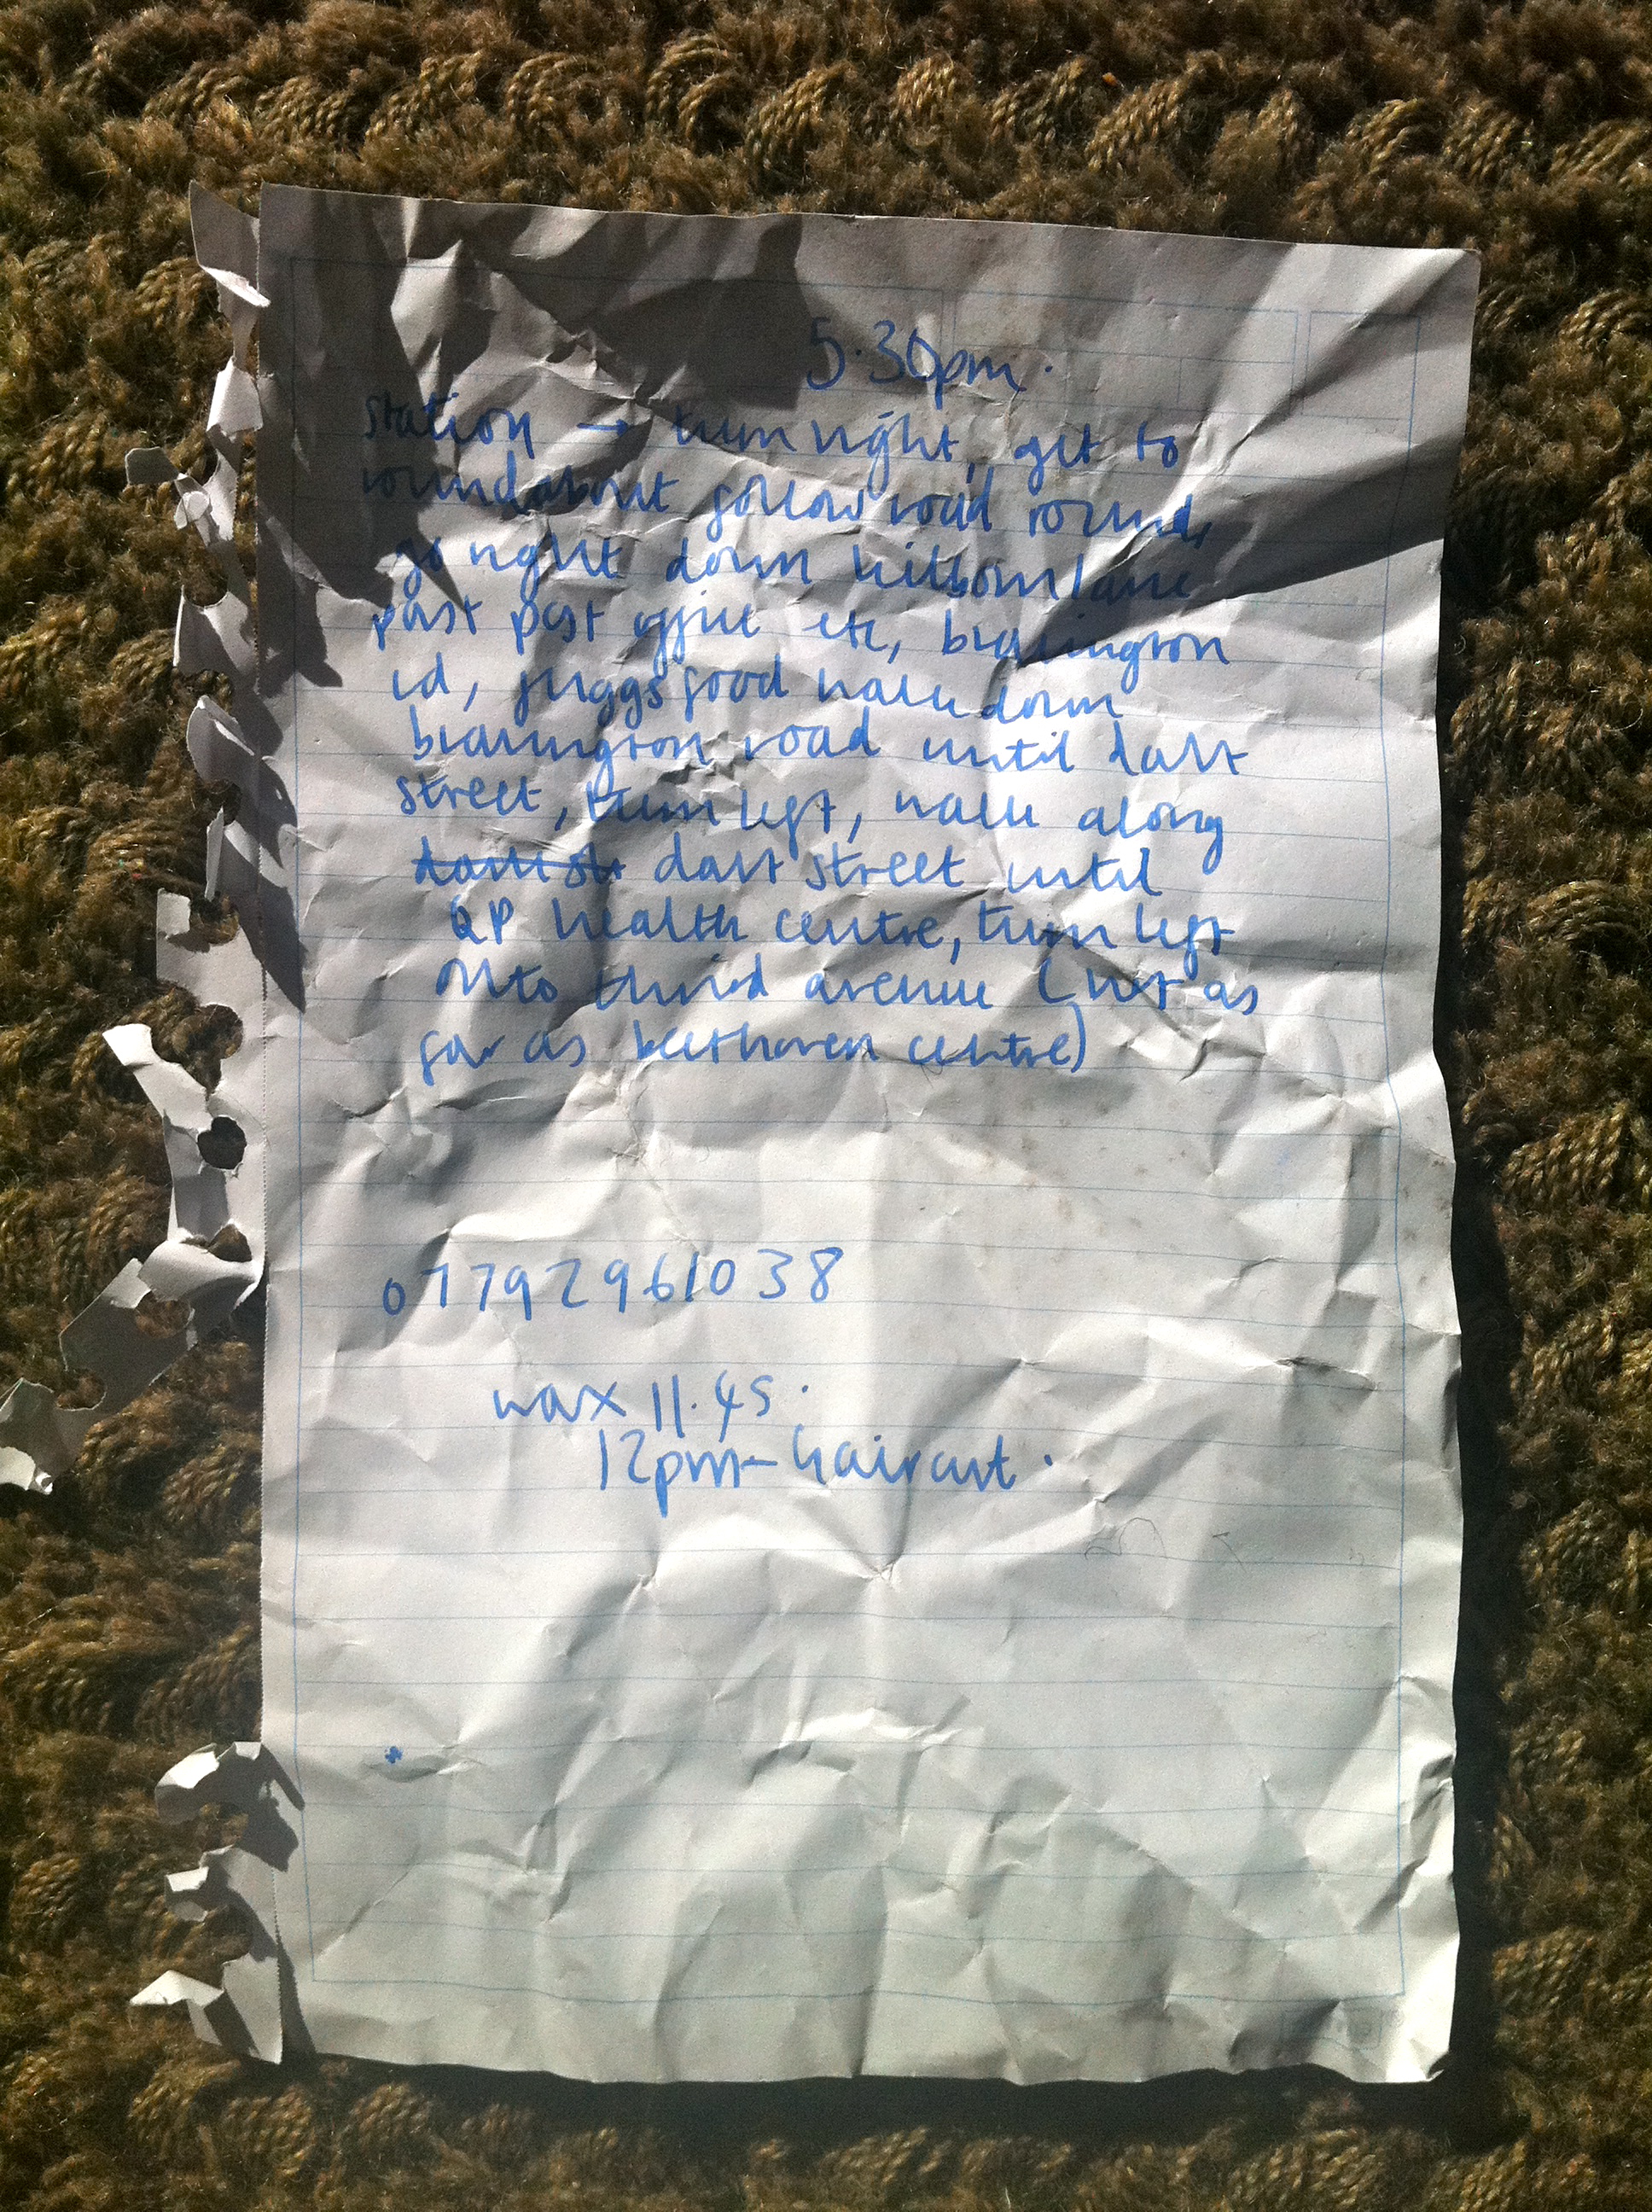 5.30pm.
station → turn right, get to
roundabout follow road round,
go right down kilbourn lane
past post office etc,
rd, juggs food walk down
road until dart
street, turn left, walk along
dart str dart street until
QP health centre, turn left
onto third avenue (not as
far as beethoven centre)
07792961038
wax 11.45.
12pm - haircut.